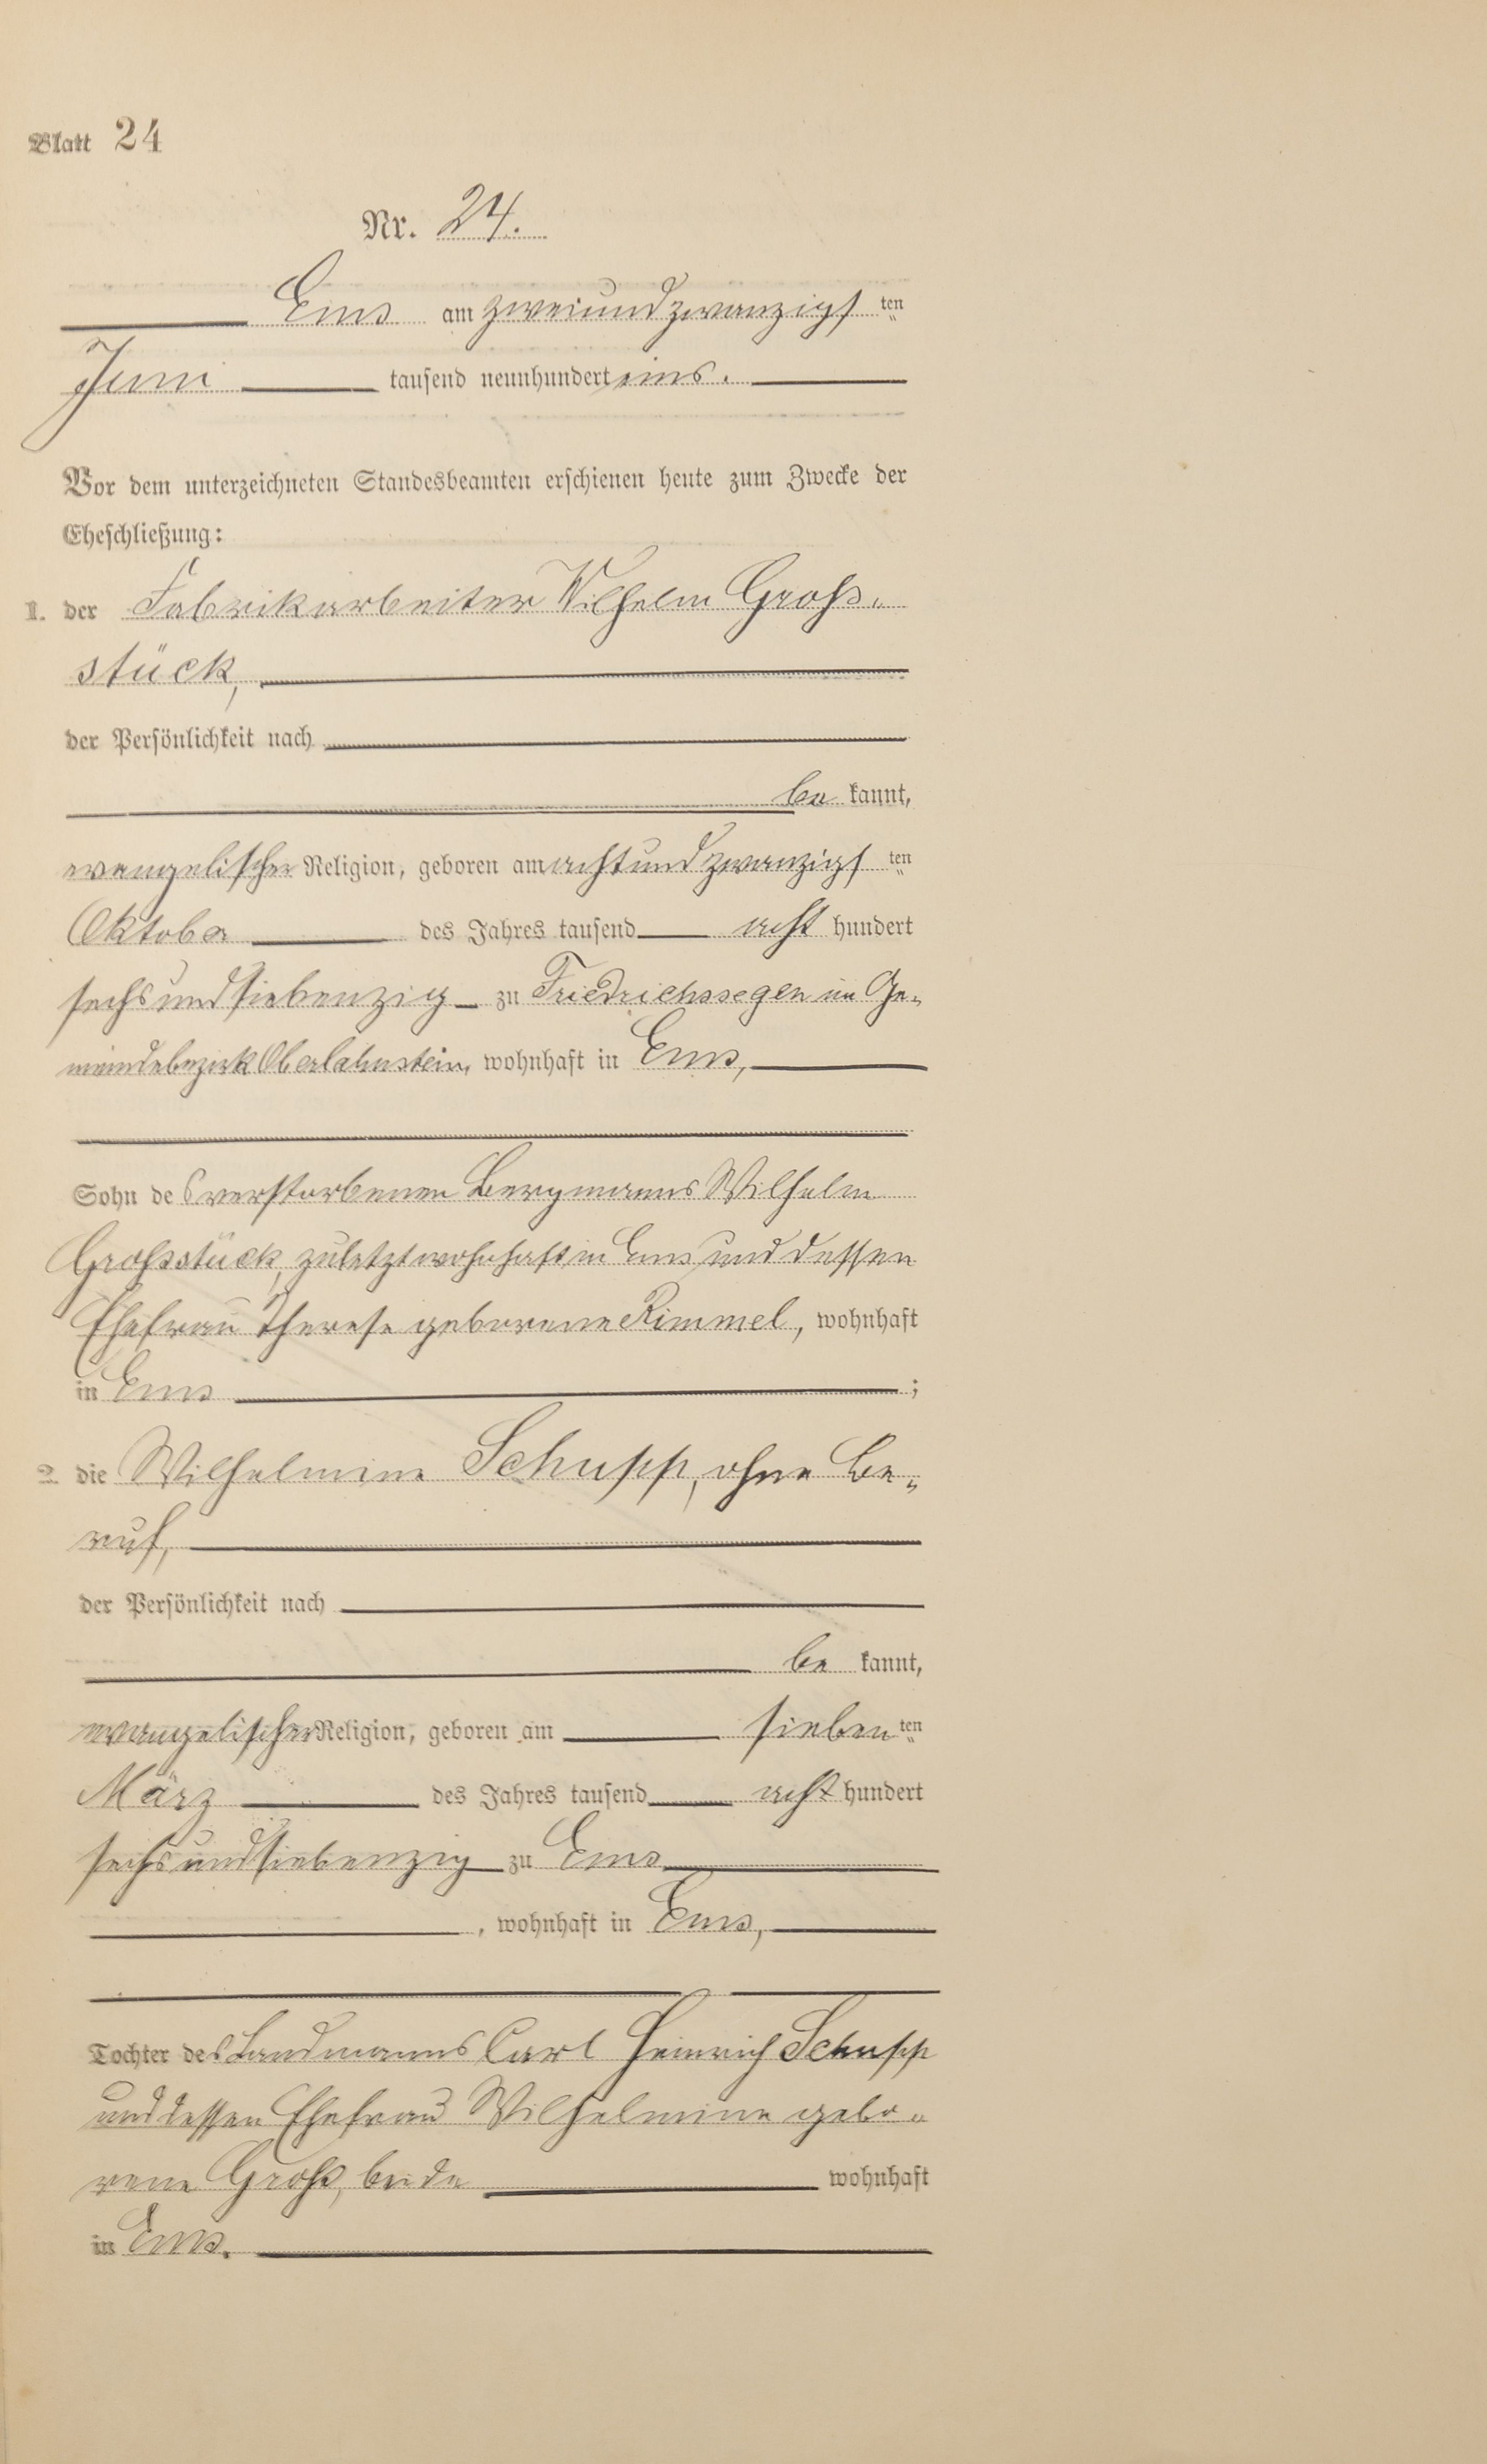 Blatt 24
Nr. 24.
Ems am zweiundzwanzigs ten
Juni tausend neunhundert eins.
Vor dem unterzeichneten Standesbeamten erschienen heute zum Zwecke der
Eheschließung:
1. der Fabrikarbeiter Wilhelm Groß-
stück,
der Persönlichkeit nach
be kannt,
evangelischer Religion, geboren am achtundzwanzigs ten
Oktober des Jahres tausend acht hundert
sechsundsiebenzig zu Friedrichssegen im Ge-
meindebezirk Oberlahnstein, wohnhaft in Ems,
Sohn des verstorbenen Bergmanns Wilhelm
Großstück, zuletzt wohnhaft in Ems und dessen
Ehefrau Therese geborene Kimmel, wohnhaft
in Ems ;
2. die Wilhelmine Schupp, ohne Be-
ruf,
der Persönlichkeit nach
be kannt,
evangelischer Religion, geboren am sieben ten
März des Jahres tausend acht hundert
sechsundsiebenzig zu Ems
, wohnhaft in Ems,
Tochter des Landmanns Carl Heinrich Schupp
und dessen Ehefrau Wilhelmine gebo-
rene Groß, beide wohnhaft
in Ems.